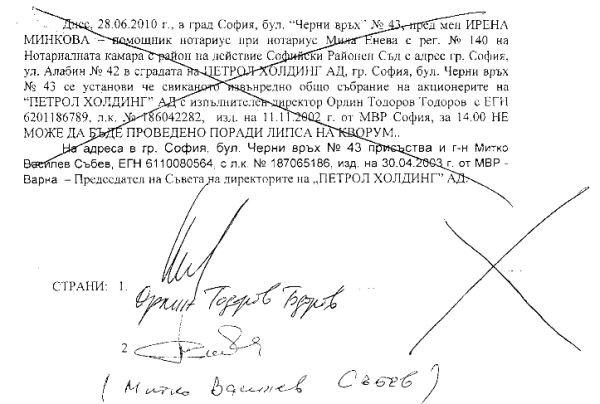 Днес, 28.06.2010 г., в град София, бул. "Черни връх" № 43, пред мен ИРЕНА
МИНКОВА – помощник нотариус при нотариус Мила Енева с рег. № 140 на
Нотариалната камара с район на действие Софийски Районен Съд с адрес гр. София,
ул. Алабин № 42 в сградата на ПЕТРОЛ ХОЛДИНГ АД, гр. София, бул. Черни връх
№ 43 се установи че свиканото извънредно общо събрание на акционерите на
"ПЕТРОЛ ХОЛДИНГ" АД с изпълнителен директор Орлин Тодоров Тодоров с ЕГН
6201186789, л.к. № 186042282, изд. на 11.11.2002 г. от МВР София, за 14.00 НЕ
МОЖЕ ДА БЪДЕ ПРОВЕДЕНО ПОРАДИ ЛИПСА НА КВОРУМ..
На адреса в гр. София, бул. Черни връх № 43 присъства и г-н Митко
Василев Събев, ЕГН 6110080564, с л.к. № 187065186, изд. на 30.04.2003 г. от МВР -
Варна – Председател на Съвета на директорите на „ПЕТРОЛ ХОЛДИНГ" АД.
СТРАНИ: 1.
Орлин Тодоров Тодоров
2
(Митко Василев Събев)